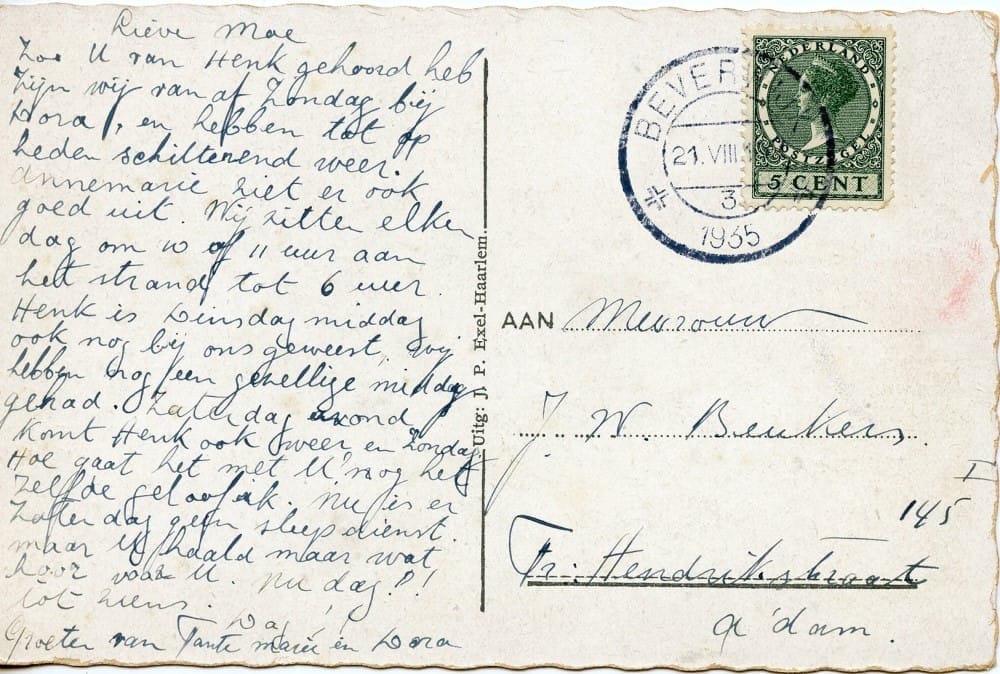 Lieve Moe
Zoo U van Henk gehoord heb
zijn wij vanaf Zondag bij
Dora, en hebben tot op
heden schitterend weer.
Annemarie ziet er ook
goed uit. Wij zitten elken
dag om 10 of 11 uur aan
het strand tot 6 uur.
Henk is Dinsdag middag
ook nog bij ons geweest, wij
hebben nog een gezellige middag
gehad. Zaterdag avond
komt Henk ook weer en Zondag.
Hoe gaat het met U nog het
zelfde geloof ik. Nu is er
Zaterdag geen sleepdienst.
maar U haald maar wat
hoor voor U. Nu dag!!
tot ziens.
Da
Groeten van Tante Marie en Dora
Uitg: J. P. Exel-Haarlem.
NEDERLAND
POSTZEGEL
5 CENT
BEVER
21.VIII
3
1935
AAN Mevrouw
J. W. Beukers
I
145
Fr. Hendrikstraat
A'dam.